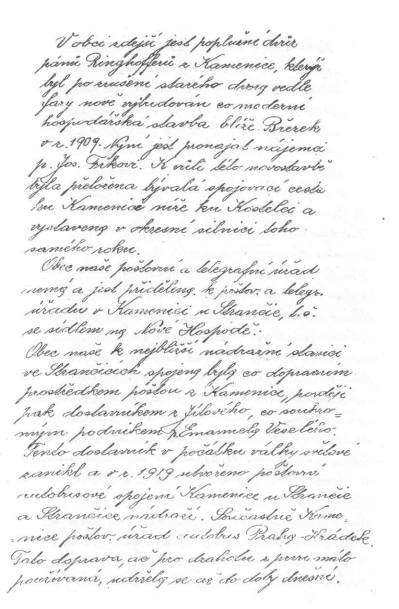 V obci zdejší jest poplužní dvůr
pánů Ringhofferů z Kamenice, kterýž
byl po zrušení starého dvora vedle
fary nově vybudován co moderní
hospodářská stavba blíže Březek
v r. 1909. Nyní jest pronajat nájemci
p. Jos. Frkovi. K vůli této novostavbě
byla přeložena bývalá spojovací cesta
ku Kamenici níže ku Kostelci a
vystavena v okresní silnici toho
samého roku.
Obec naše poštovní a telegrafní úřad
nemá a jest přidělena k poštov. a telegr.
úřadu v Kamenici u Strančic, t. č.
se sídlem na Nové Hospodě.
Obec naše k nejbližší nádražní stanici
ve Strančicích spojena byla co dopravním
prostředkem poštou z Kamenice, později
pak dostavníkem z Jílového, co soukro-
mým podnikem p. Emanuela Veselého.
Tento dostavník v počátku války světové
zanikl a v r. 1919 utvořeno poštovní
autobusové spojení Kamenice u Strančic
a Strančice nádraží. Současně Kame-
nice poštov. úřad autobus Praha-Hrádek.
Tato doprava, ač pro drahotu z prvu málo
používaná, udržela se až do doby dnešní.